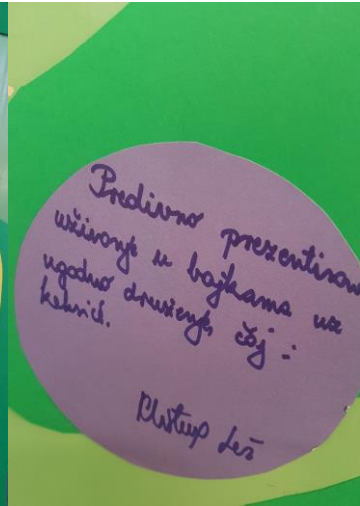 Predivno prezentirano
uživanje u bajkama uz
ugodno druženje, čaj i
keksić.
Leš